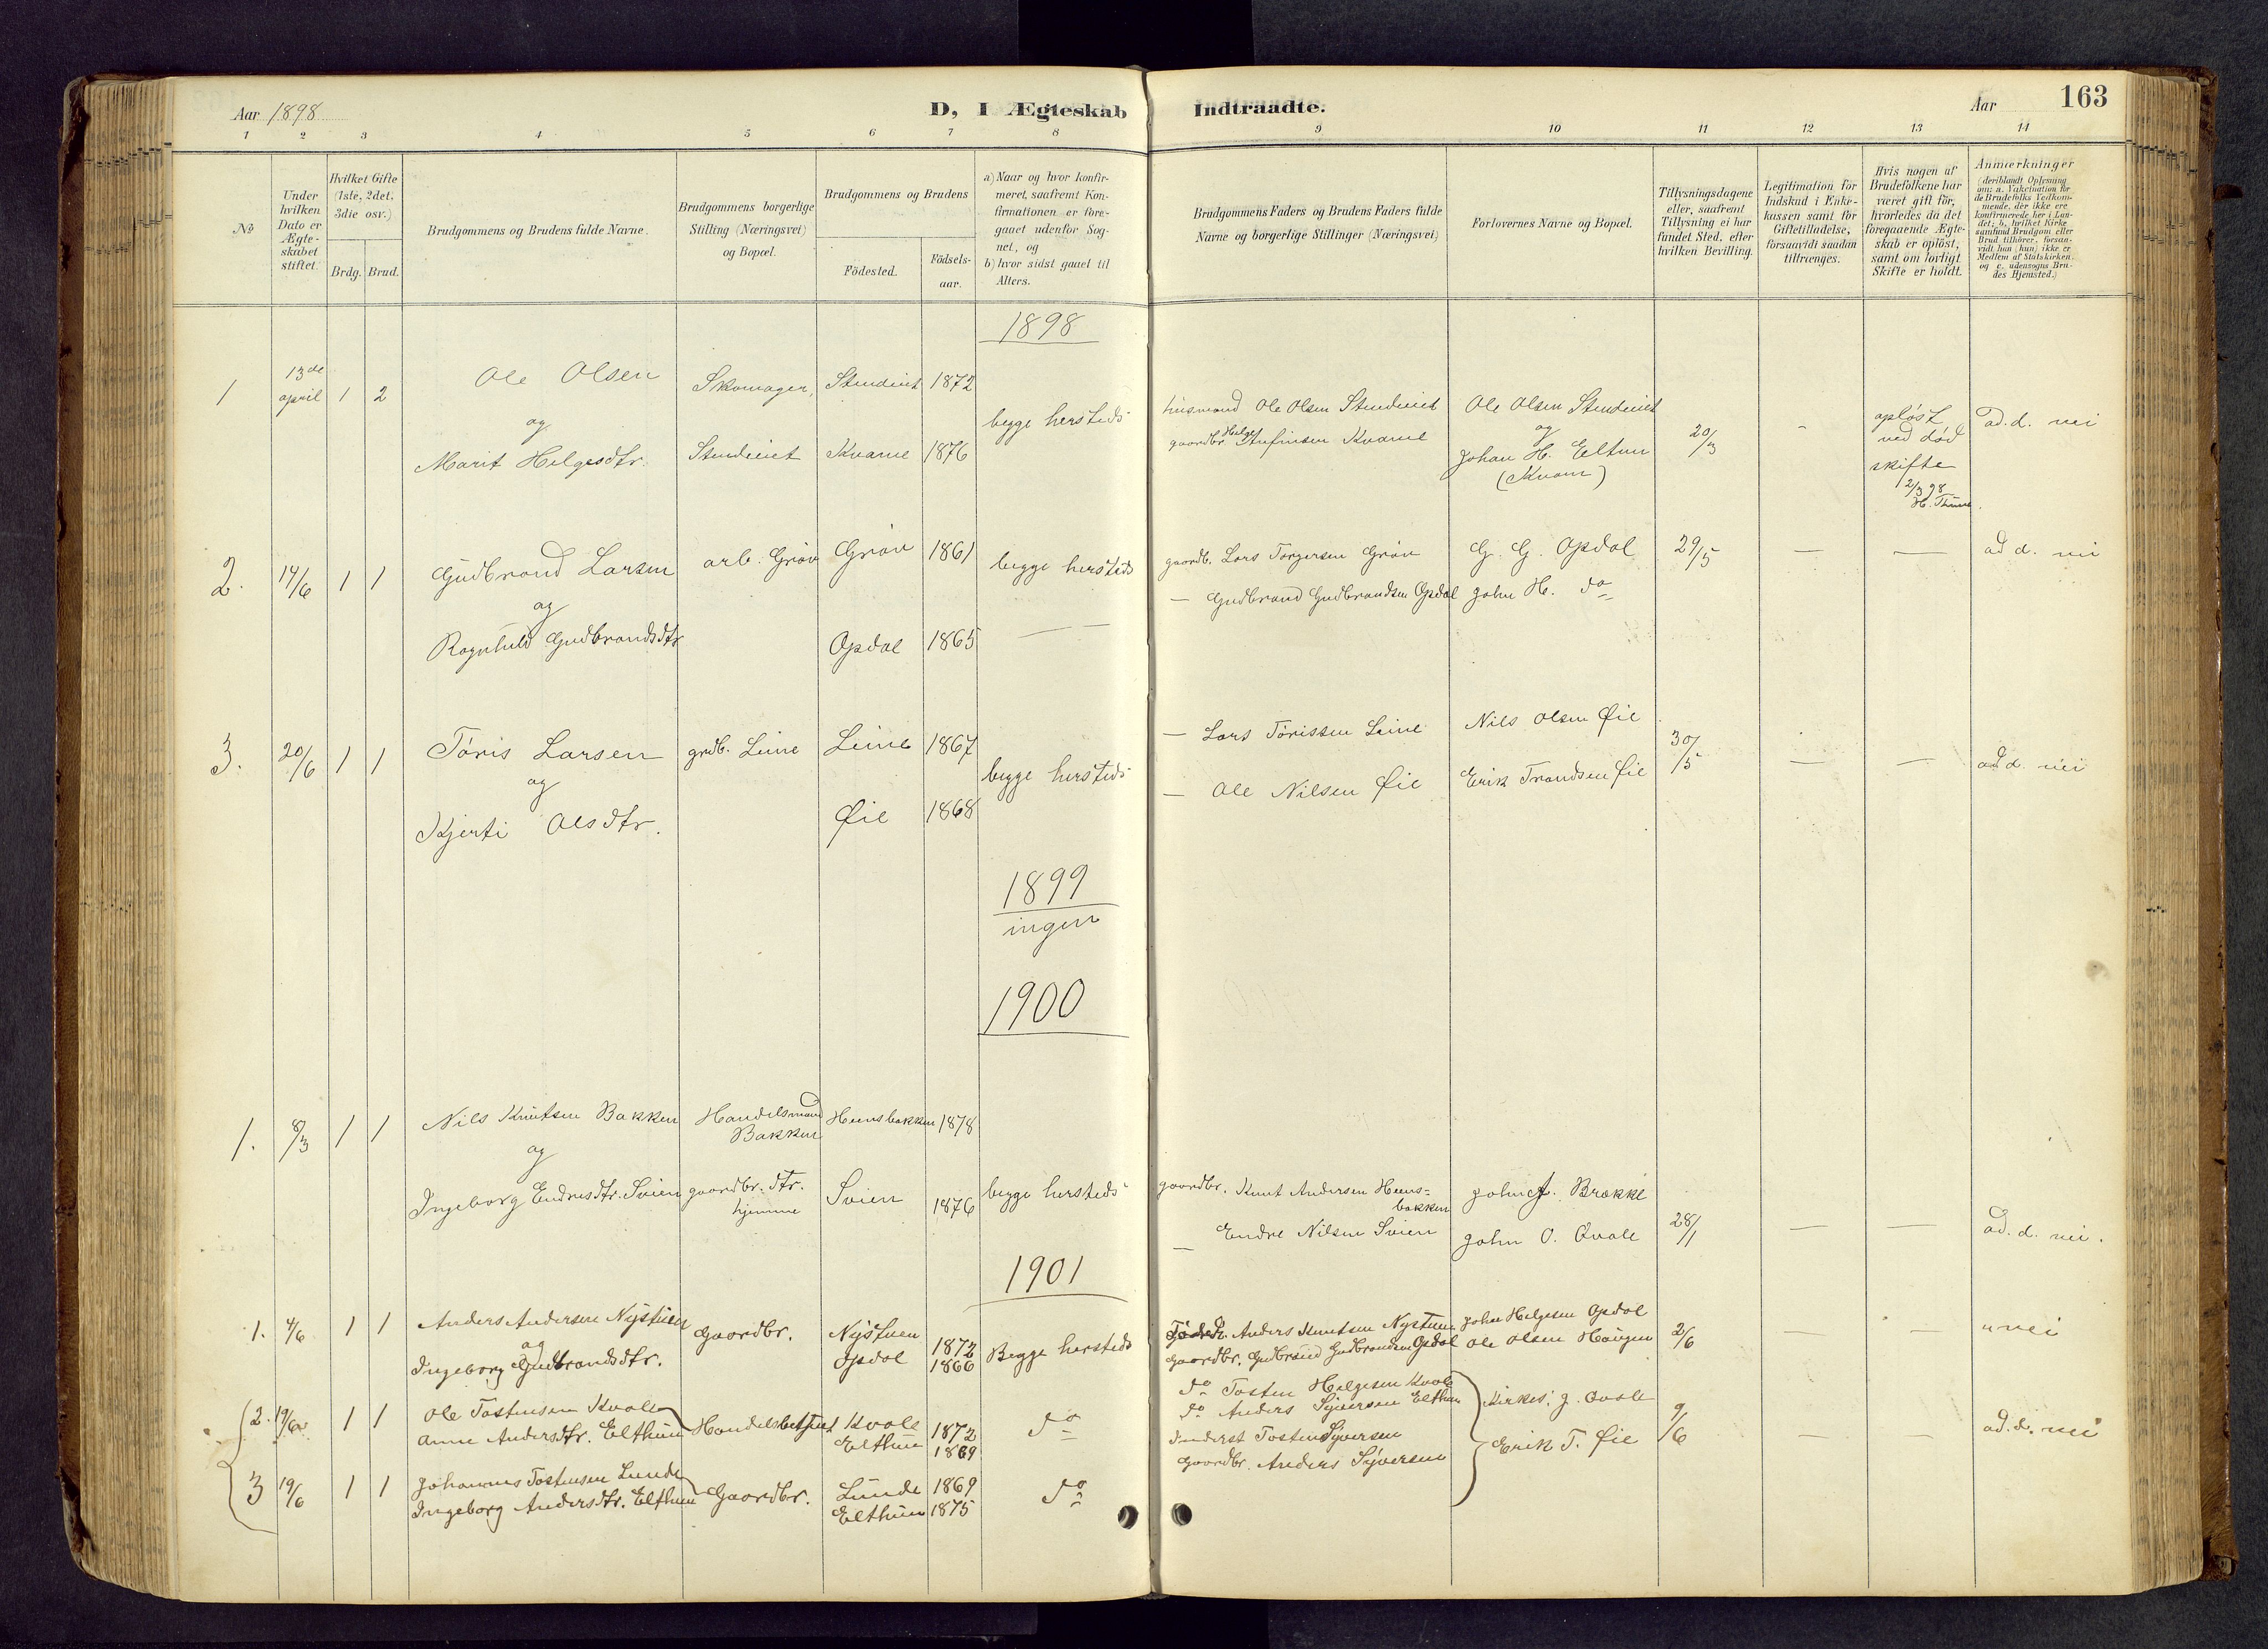 Aar 1898
D, I Ægteskab Indtraadte.
Aar
163
1 2 3 4 5 6 7 8 9 10 11 12 13 14
No
Under hvilken Dato er Ægteskabet stiftet.
Hvilket Gifte (1ste, 2det, 3die osv.)
Brdg. Brud.
Brudgommens og Brudens fulde Navne.
Brudgommens borgerlige Stilling (Næringsvei) og Bopæl.
Brudgommens og Brudens
Födested.
Födsels-aar.
a) Naar og hvor konfirmeret, saafremt Konfirmationen er foregaaet udenfor Sognet, og
b) hvor sidst gaaet til Alters.
Brudgommens Faders og Brudens Faders fulde Navne og borgerlige Stillinger (Næringsvei)
Forlovernes Navne og Bopæl.
Tillysningsdagene eller, saafremt Tillysning ei har fundet Sted, efter hvilken Bevilling.
Legitimation for Indskud i Enkekassen samt for Giftetilladelse, forsaavidt saadan tiltrænges.
Hvis nogen af Brudefolkene har været gift før, hvorledes da det foregaaende Ægteskab er oplöst, samt om lovligt Skifte er holdt.
Anmærkninger (deriblandt Oplysning om: a. Vakcination for de Brudefolks Vedkommende, der ikke ere konfirmerede her i Landet; b. hvilket Kirkesamfund Brudgom eller Brud tilhörer, forsaavidt han (hun) ikke er Medlem af Statskirken, og c. udensogns Brudes Hjemsted.)
1898
1 13de april 1 2 Ole Olsen Skomager Stendeiet 1872
og
Marit Helgesdtr. Stendeiet Kvame 1876
begge hersteds
husmand Ole Olsen Stendeiet
gaardbr. Helge Kvame
Ole Olsen Stendeiet
og
Johan H. Eltun
(Kvam)
20/3
-
opløst
ved død
skifte
12/3 98
H. Thune.
ad. d. nei
2. 14/6 1 1 Gudbrand Larsen arb. Grøv Grøv 1861
og
Ragnhild Gudbrandsdtr Opdal 1865
begge hersteds
—
gaardb. Lars Torgersen Grøv
— Gudbrand Gudbrandsen Opdal
G. G. Opdal
John H. do
29/5
— —
ad d. nei
3. 20/6 1 1 Tøris Larsen grdb. Leine Leine 1867
og
Kjersti Olsdtr. Øie 1868
begge hersteds
— Lars Tørissen Leine
— Ole Nilsen Øie
Nils Olsen Øie
Erik Trondsen Øie
30/5
— —
ad d. nei
1899
ingen
1900
1. 8/3 1 1 Nils Knutsen Bakken Handelsmand Bakken Heensbakken 1878
og
Ingeborg Endresdtr. Svien gaardbr. dtr. hjemme Svien 1876
begge hersteds
gaardbr. Knut Andersen Heens=
bakken
— Endre Nilsen Svien
John Brække
John O. Qvale
28/1
— —
ad. d. nei.
1901
1. 4/6 1 1 Anders Andersen Nystuen Gaardbr. Nystuen 1872
og
Ingeborg Gudbrandsdtr. Opdal 1866
Begge hersteds
Anders Knutsen Nystuen
Gaardbr. Gudbrand Gudbrandsen Opdal
John Helgesen Opdal
Ole Olsen Haugen
2/6
— —
" nei
2. 19/6 1 1 Ole Tostensen Kvale
Anne Andersdtr. Elthun
Handelsbetjent Kvale 1872
Elthun 1869
do
do Tosten Helgesen Kvale
do Anders Syversen Elthun
Kirkes. J. Qvale
9/6
— —
ad. d. nei
3 19/6 1 1 Johannes Tostensen Lunde
Ingeborg Andersdtr. Elthun
Gaardbr. Lunde 1869
Elthun 1875
do
Inderst Tosten Syversen
Gaardbr. Anders Syversen
Erik T. Øie